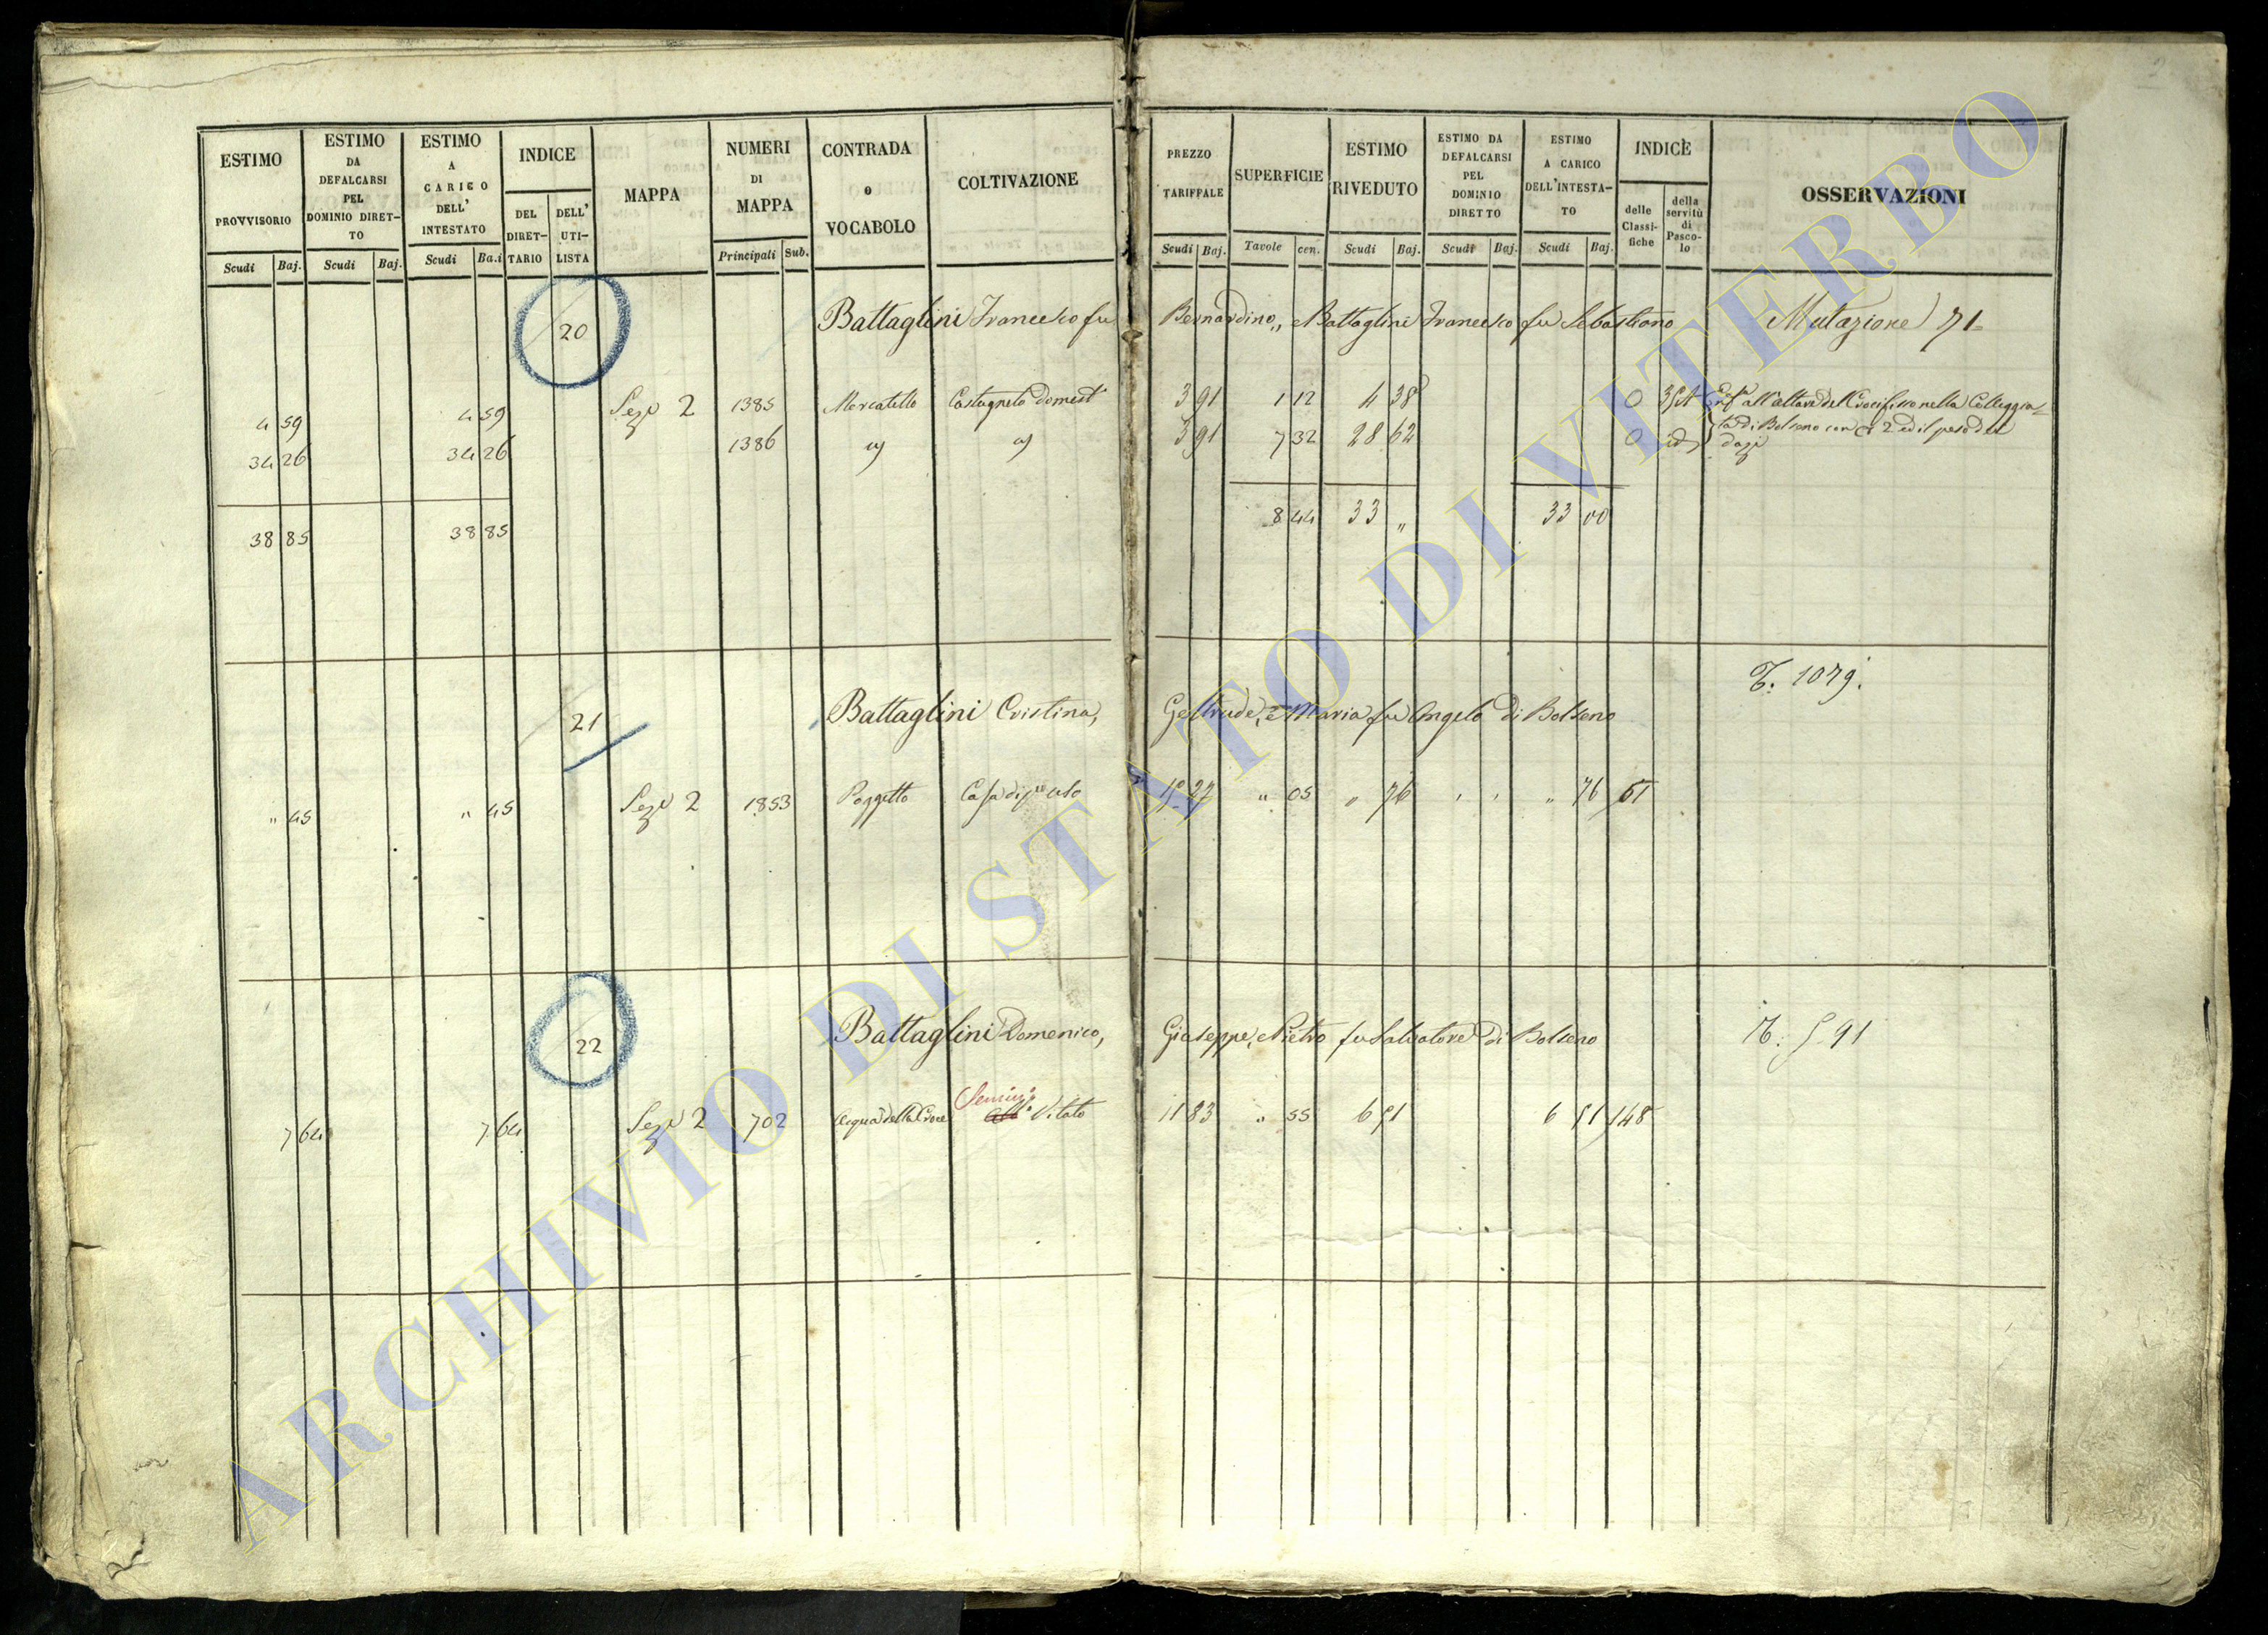 ESTIMO PROVVISORIO Scudi Baj.
ESTIMO DA DEFALCARSI PEL DOMINIO DIRET-TO Scudi Baj.
ESTIMO A CARICO DELL' INTESTATO Scudi Ba.i
INDICE DEL DIRET-TARIO DELL' UTI-LISTA
MAPPA
NUMERI DI MAPPA Principali Sub.
CONTRADA o VOCABOLO
COLTIVAZIONE
PREZZO TARIFFALE Scudi Baj.
SUPERFICIE Tavole cen.
ESTIMO RIVEDUTO Scudi Baj.
ESTIMO DA DEFALCARSI PEL DOMINIO DIRETTO Scudi Baj.
ESTIMO A CARICO DELL'INTESTA-TO Scudi Baj.
INDICE delle Classi-fiche della servitù di Pasco-lo
OSSERVAZIONI
20 Battaglini Francesco fu Bernardino,, Battaglini Francesco fu Sebastiano Mutazione 71
4 59 4 59 Sez. 2 1385 Mercatello Castagneto domest 3 91 1 12 4 38 0 all'altare del Crocifisso nella Colleggia-
34 26 34 26 1386 3 91 7 32 28 62 0 id ta di Bolseno con 2 ed il peso dei
dazj
38 85 38 85 8 44 33 ,, 33 00
T. 1079.
21 Battaglini Cristina, Geltrude, e Maria fu Angelo di Bolseno
" 45 " 45 Sez. 2 1853 Poggetto Casa di pro uso 15 27 " 05 " 76 " 76 61
22 Battaglini Domenico, Giuseppe, e Pietro fu Salvatore di Bolseno T. 591
7 64 7 64 Sez. 2 702 Acqua della Croce Semin.o Vitato 11 83 " 55 6 51 6 51 148
ARCHIVIO DI STATO DI VITERBO